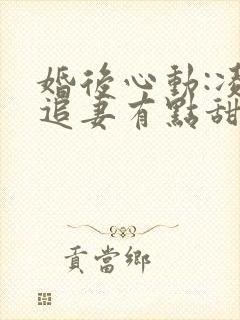 婚後心動:凌
追妻有點甜
貢當鄉